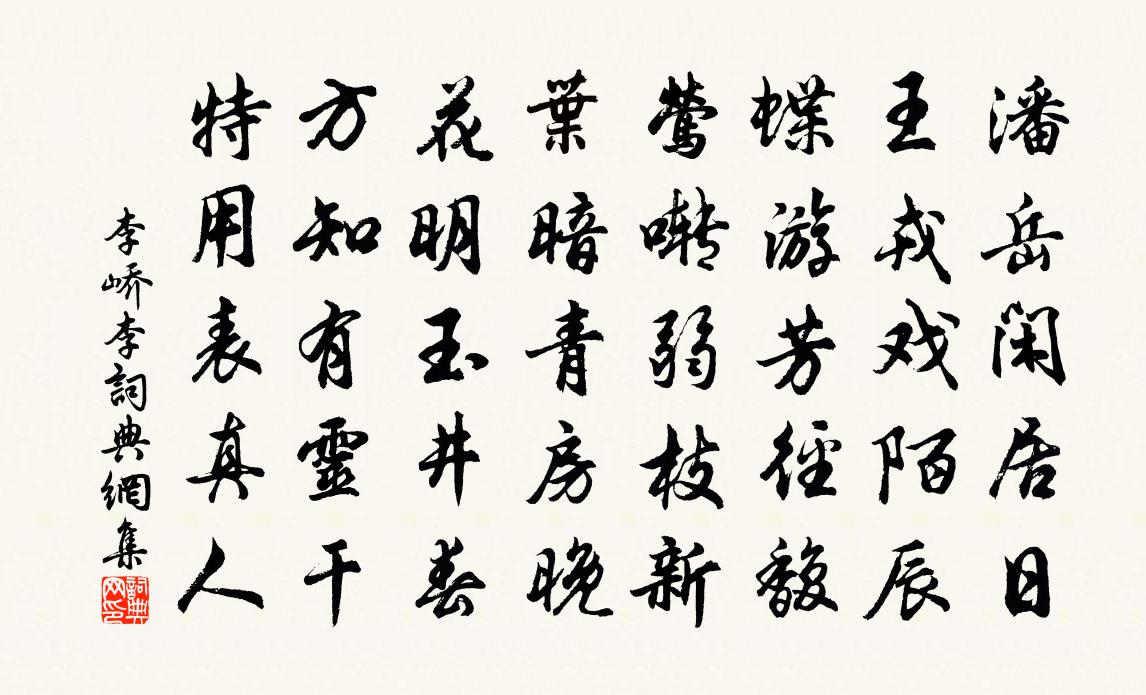 潘岳闲居日
王戎戏陌辰
蝶游芳径馥
莺啭弱枝新
葉暗青房晚
花明玉井春
方知有靈干
特用表真人
李峤李詞典網集
詞典网印